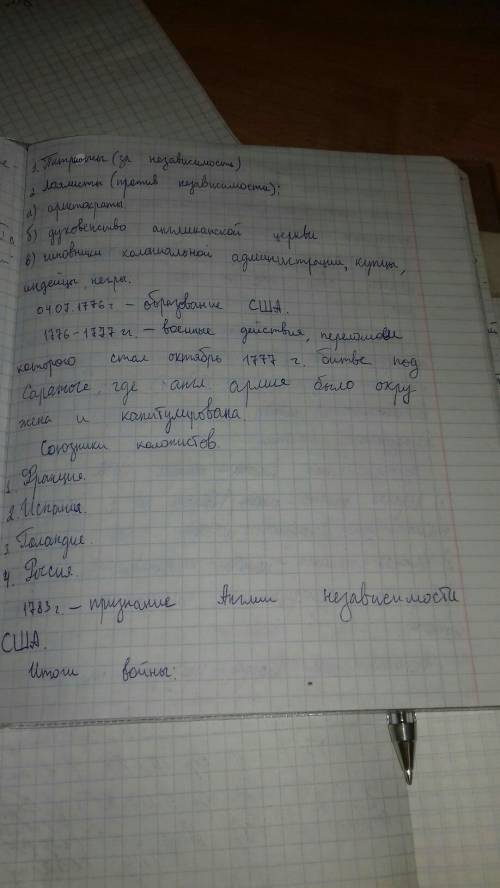 1. Патриоты (за независимость)
2 Лоялисты (против независимости);
а) аристократы
б) духовенство англиканской церкви
в) чиновники колониальной администрации, купцы,
индейцы негры.
04.07.1776 г. – образование США.
1776 – 1777 гг. – военные действия, переломом
которого стал октябрь 1777 г. битве под
Саратоге, где англ. армия было окру
жена и капитулирована.
Союзники колонистов.
1. Франция.
2. Испания.
3 Голандия.
4. Россия.
1783 г. – признание Англии независимости
США.
Итоги войны: